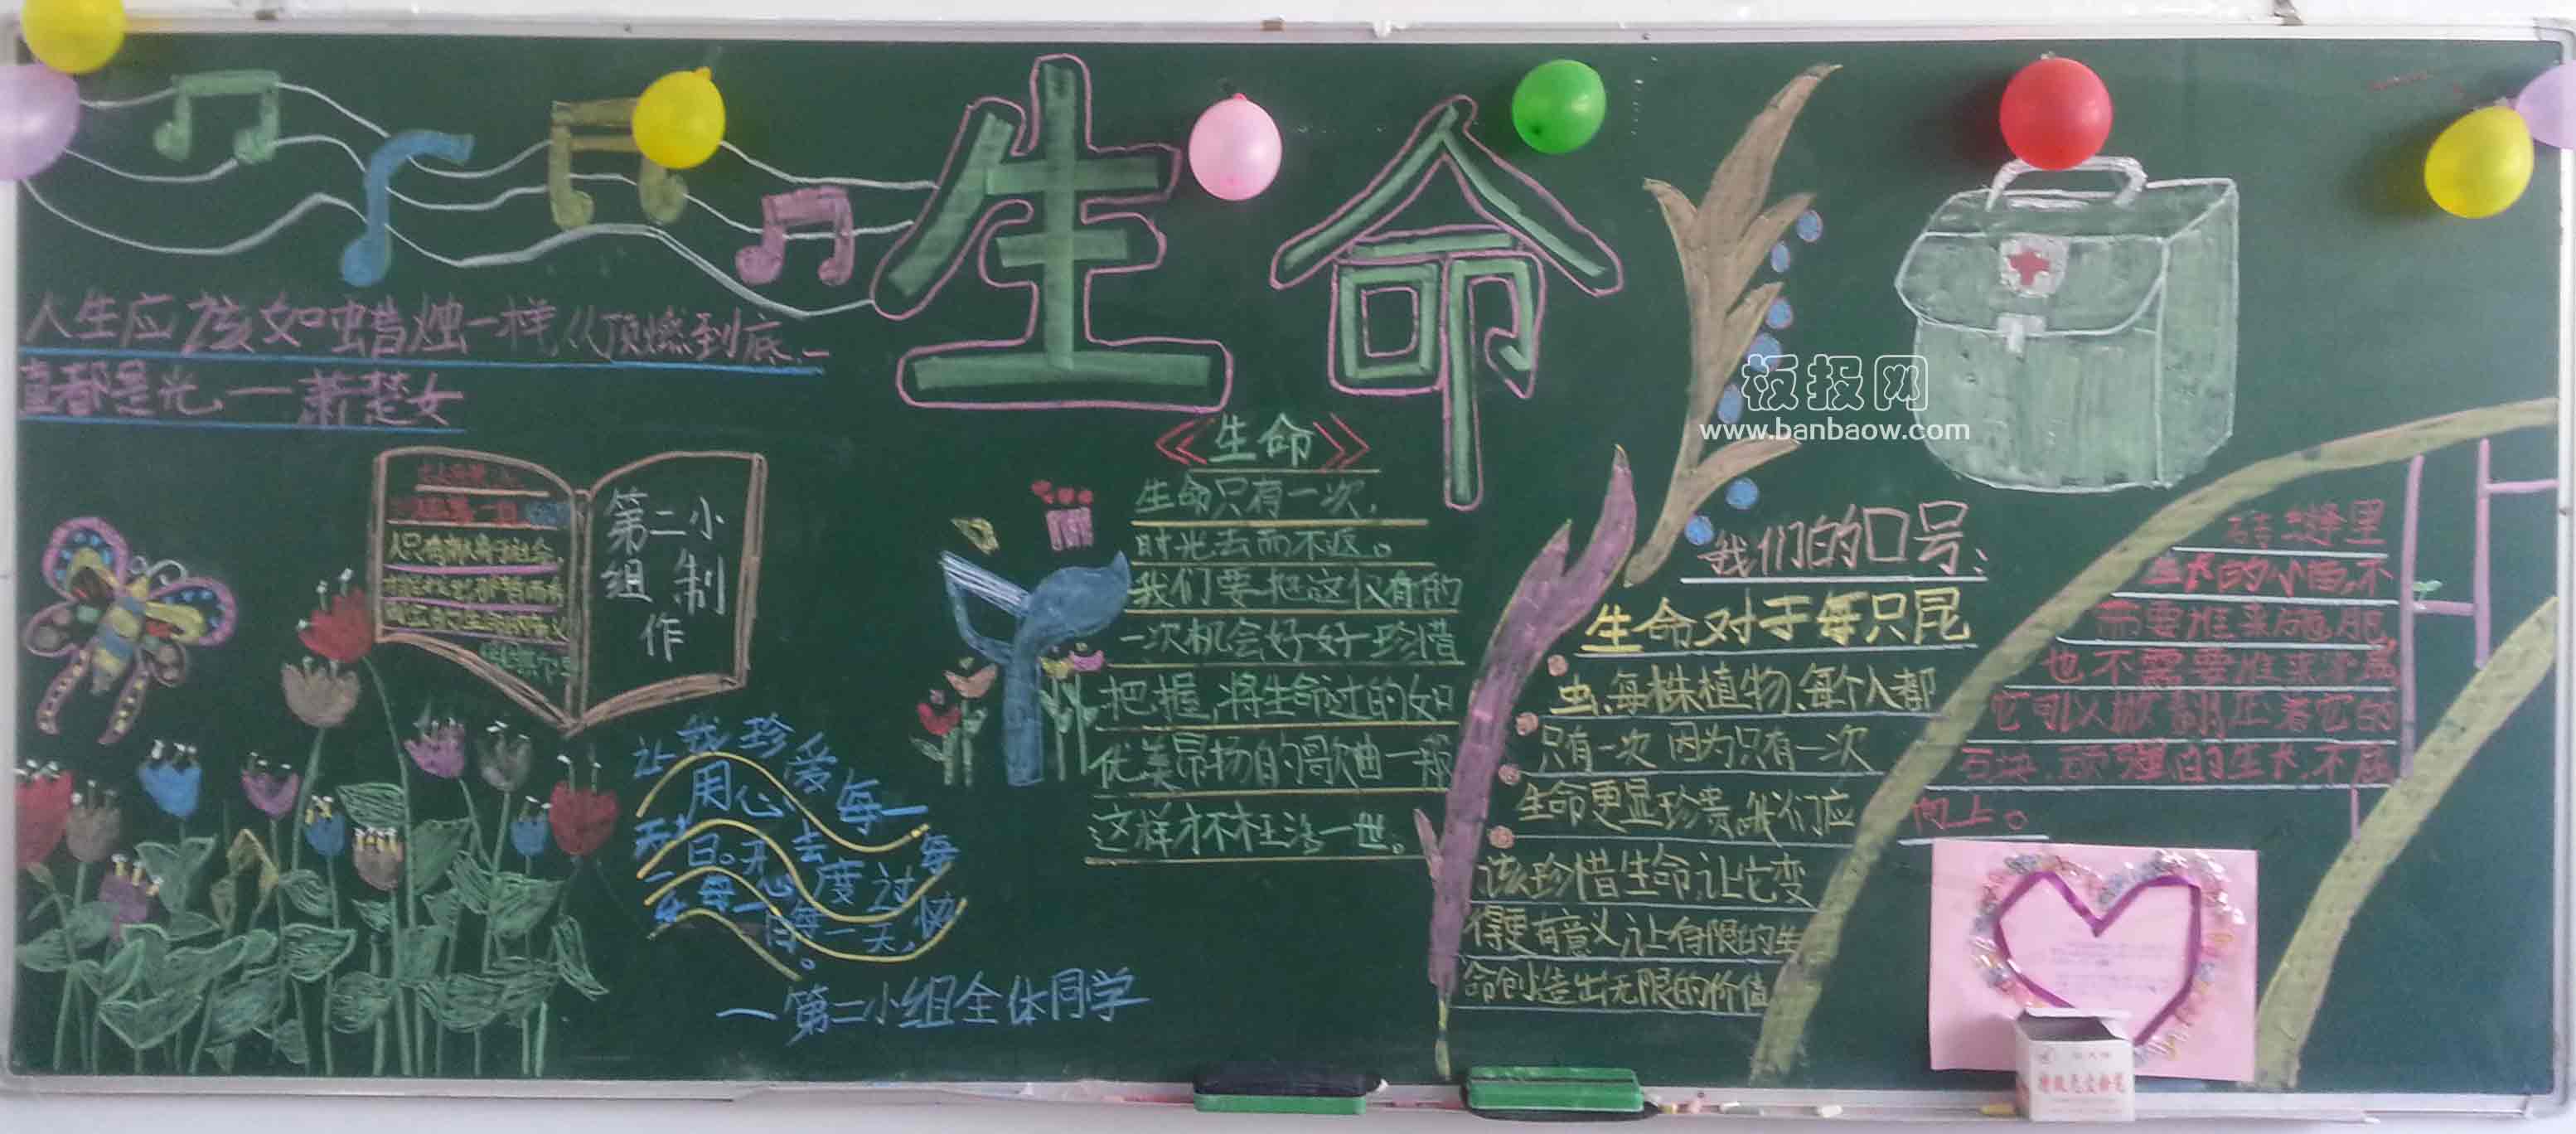 生命
人生应该如蜡烛一样,从顶燃到底,一
直都是光,——萧楚女
第二小
组制
作
人只有献身于社会,
《生命》
生命只有一次,
时光去而不返。
我们要把这仅有的
一次机会好好珍惜
把握,将生命过的如
优美昂扬的歌曲一般
这样才不枉活一世。
让我珍爱每一
天,用心去度过每
一日。开心
每一天,
——第二小组全体同学
我们的口号:
生命对于每只昆
虫、每株植物、每个人都
只有一次 因为只有一次
生命更显珍贵,我们应
该珍惜生命,让它变
得更有意义,让有限的生
命创造出无限的价值
砖缝里
生长的小苗,不
需要谁来施肥,
也不需要谁来
它可以掀翻压着它的
石块,顽强的生长,不屈
向上。
板报网
www.banbaow.com